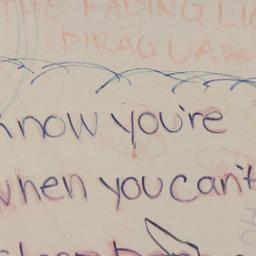 THE FADING LIG
PIRAGUA.
know you're
when you can't